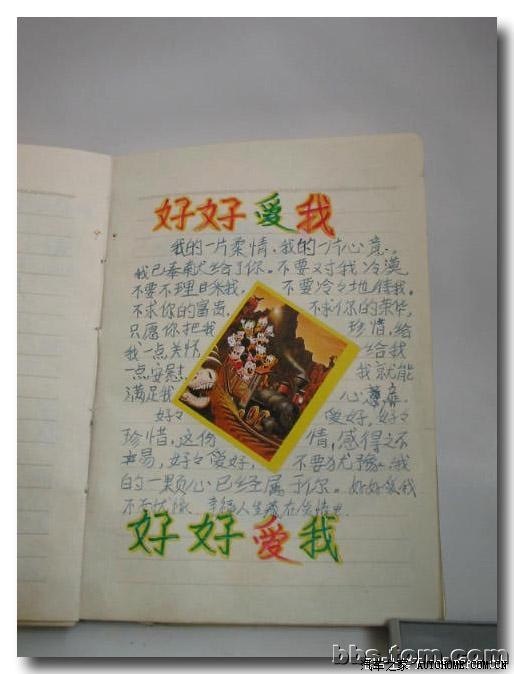 好好爱我
我的一片柔情、我的一片心意，
我已奉献给了你。不要对我冷漠
不要不理自采我， 不要冷々地待我。
不求你的富贵， 不求你的荣华，
只愿你把我 珍惜，给
我一点关怀， 给我
一点安慰， 我就能
满足我 心愿
好々 爱好，好々
珍惜，这份 情，感得之不
易，好々爱好， 不要犹豫，我
的一颗心已经属于你。好好爱我
不否犹豫 幸福人生
好好爱我
bbs.tom.com
汽车之家 AUTOHOME.COM.CN